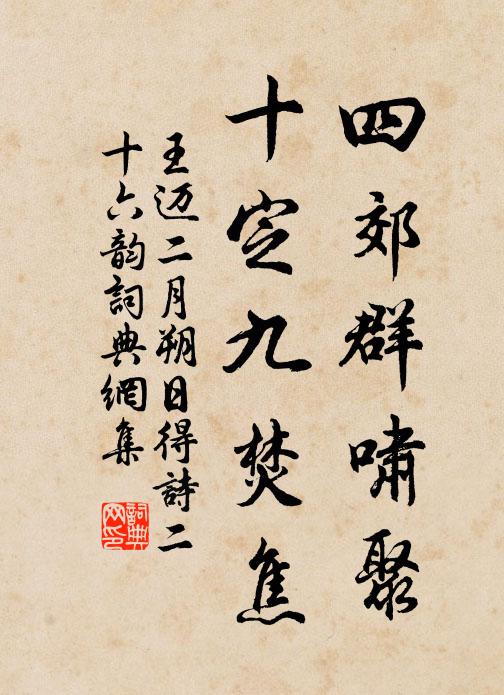 四郊群嘯聚
十室九焚焦
王迈二月朔日得詩二
十六韵詞典網集
詞典
网印